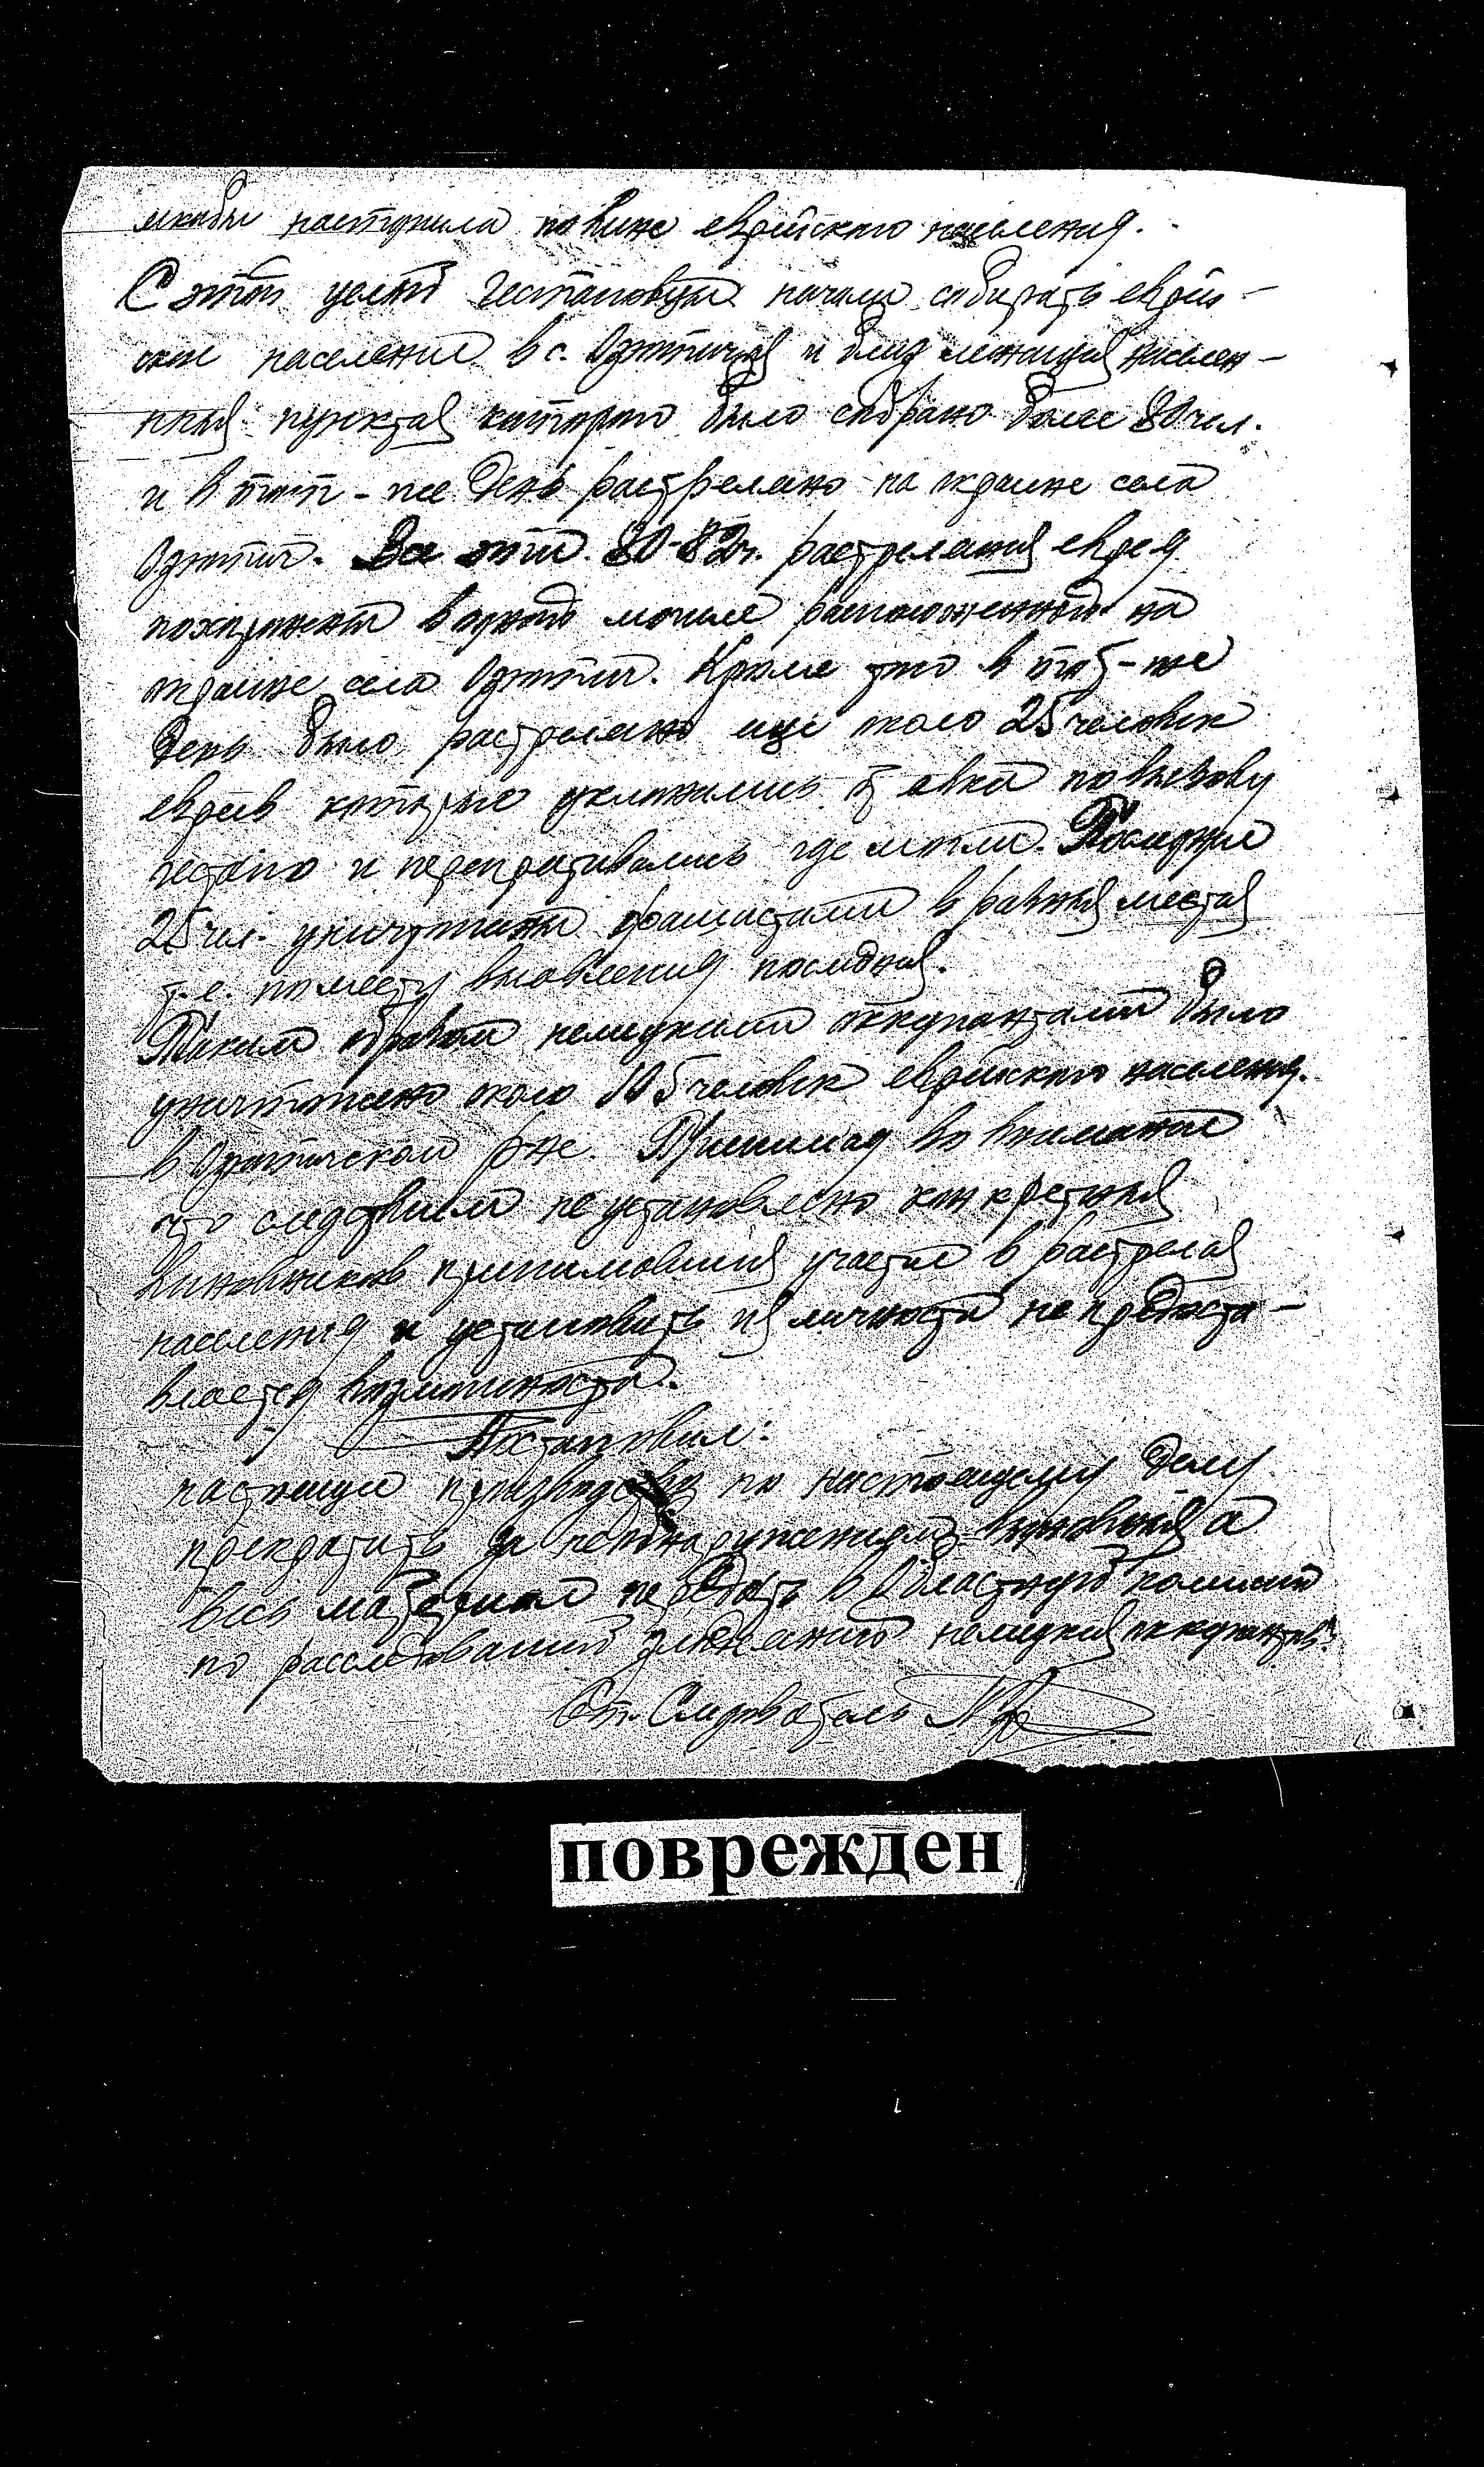 якобы наступила по вине еврейского населения.
С этой целью гестаповцы начали собирать еврей-
ское население в с. и близ лежащих населен-
ных пунктах которого было собрано более 80 чел.
и в тот-же день растреляно на окраине села
Все эти 80-82ч. растреляных еврея
похоронены в одной могиле расположенной на
окраине села Кроме того в тот-же
день было растреляно еще около 25 человек
евреев которые уклонились от явки по вызову
гестапо и перепрятывались где могли. Последние
25 чел. уничтожены фашистами в разных местах
т.е. по месту выявления последних.
Таким образом немецкими оккупантами было
уничтожено около 105 человек еврейского населения.
в р-не. Принимая во внимание
что следствием не установлено конкретных
виновников принимавших участие в растрелах
населения и установить их личности не предоста-
вляется возможности.
Постановил:
настоящее производство по настоящему делу
прекратить за необнаружением виновных а
весь материал передать в Областную комиссию
по расследованию злодеяний немецких оккупантов.
Ст. Следователь
поврежден